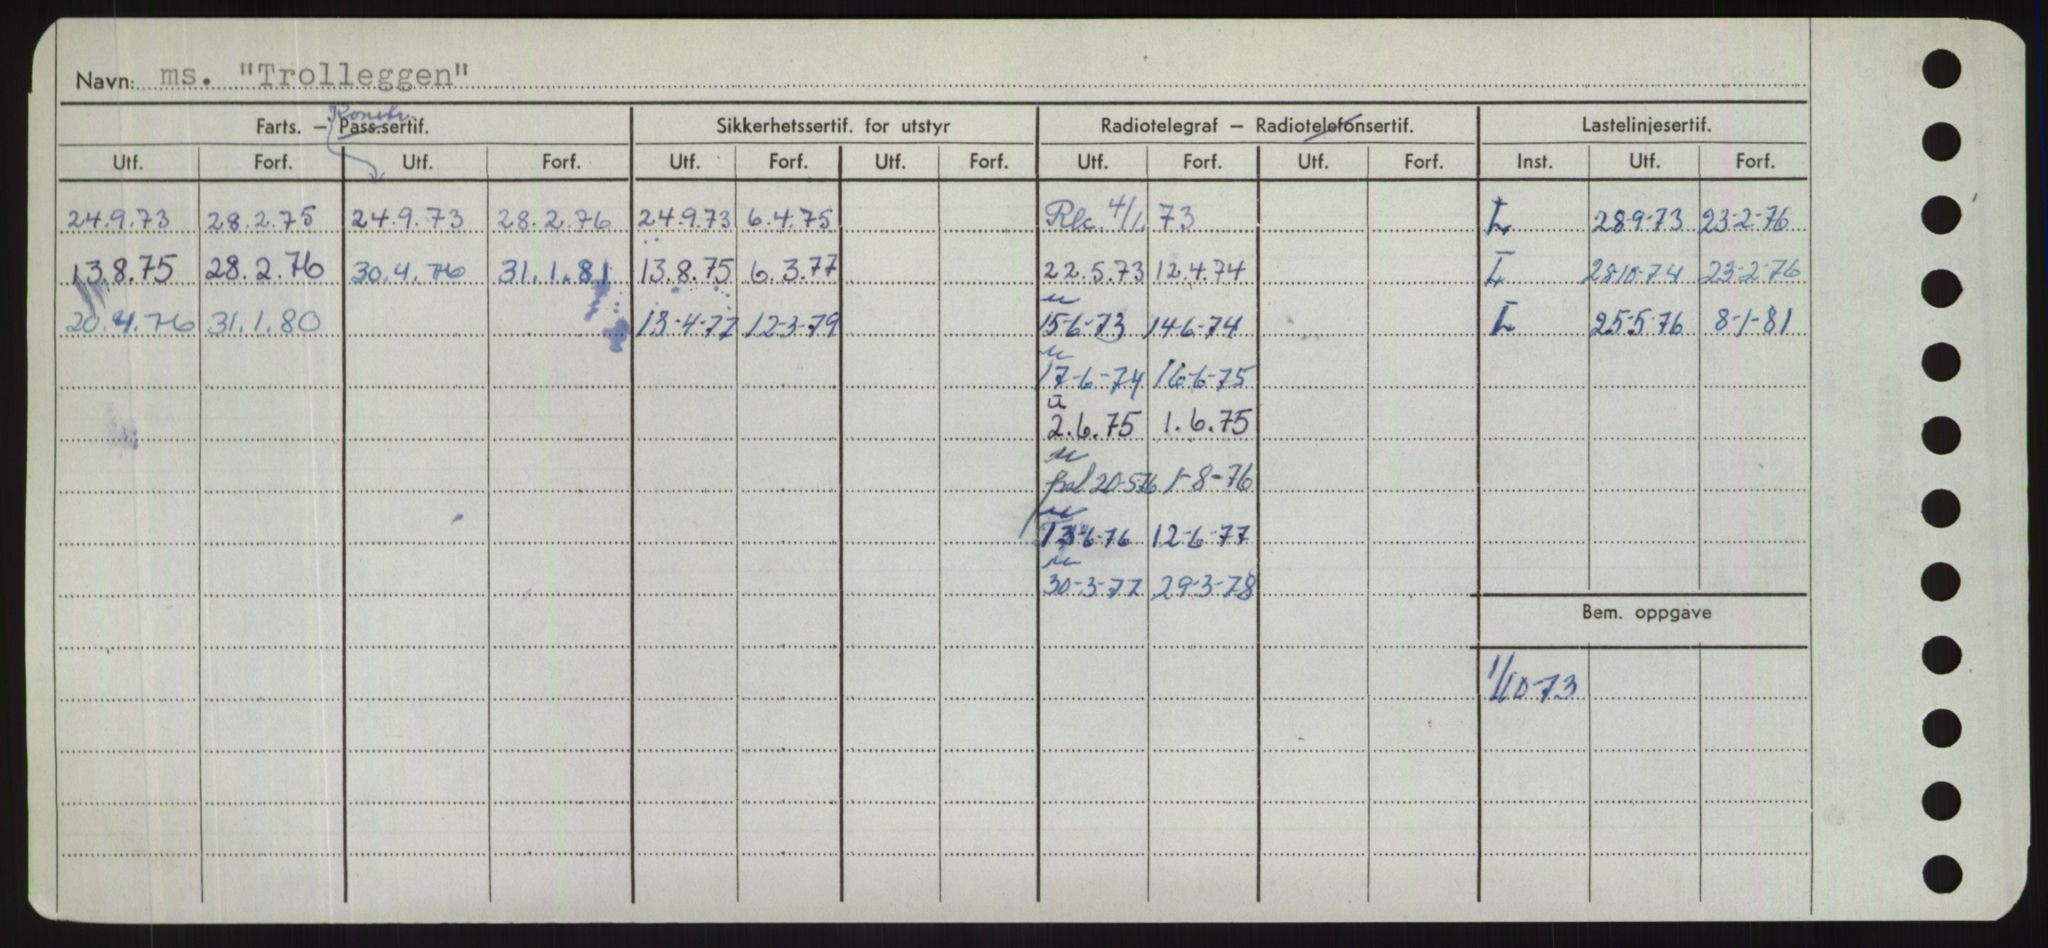 Navn: ms. "Trolleggen"
Konstr.
Farts. — Pass.sertif. Sikkerhetssertif. for utstyr Radiotelegraf — Radiotelefonsertif. Lastelinjesertif.
Utf. Forf. Utf. Forf. Utf. Forf. Utf. Forf. Utf. Forf. Utf. Forf. Inst. Utf. Forf.
24.9.73 28.2.75 24.9.73 28.2.76 24.9.73 6.4.75 4/1. 73 L 28-9-73 23-2-76
13.8.75 28.2.76 30.4.76 31.1.81 13.8.75 6.3.77 22.5.73 12.4.74 I 28-10-74 23-2-76
20.4.76 31.1.80 13-4-77 12-3-79 15-6-73 14-6-74 L 25-5-76 8-1-81
17-6-74 16-6-75
2.6.75 1.6.75
20-5-76 1-8-76
13-6-76 12-6-77
30-3-77 29-3-78
Bem. oppgave
1/10-73